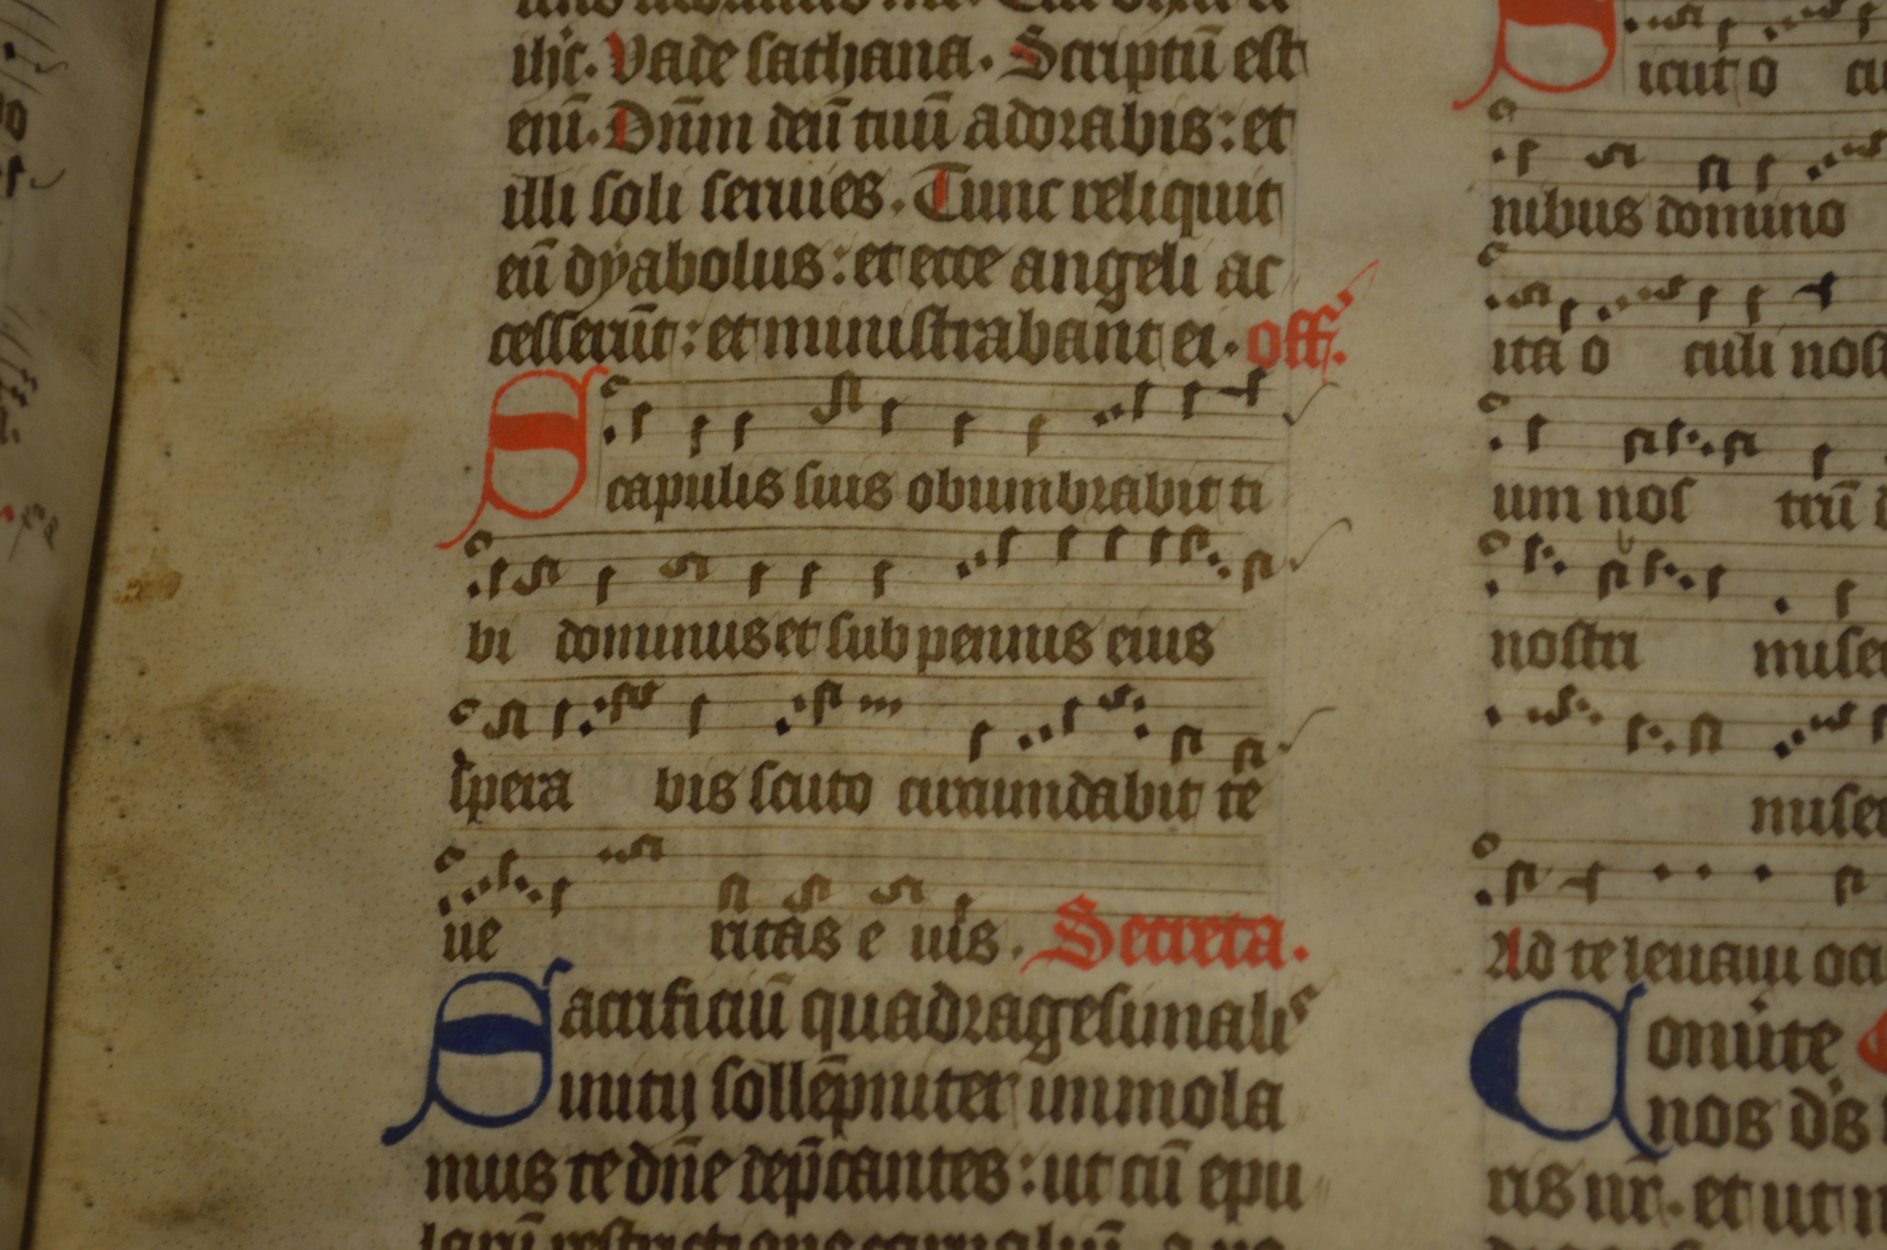 ihc. Vade sathana. Scriptū est
enī. Dn̄m deū tuū adorabis: et
illi soli seruies. Tunc reliquit
eū dyabolus: et ecce angeli ac
cesserūt: et ministrabant ei. off.
Scapulis suis obumbrabit ti
bi dominus et sub pennis eius
spera bis scuto circumdabit te
ue ritas e ius. Secreta.
Sacrificiū quadragesimalis
initij sollēpniter immola
mus te dn̄e dep̄cantes: ut cū epu
Sicut o cu
nibus domino
ita o culi nos
um nos trū d
nostri miser
miser
Ad te leuaui ocu
Conūte
nos ds
ris nr̄. et ut